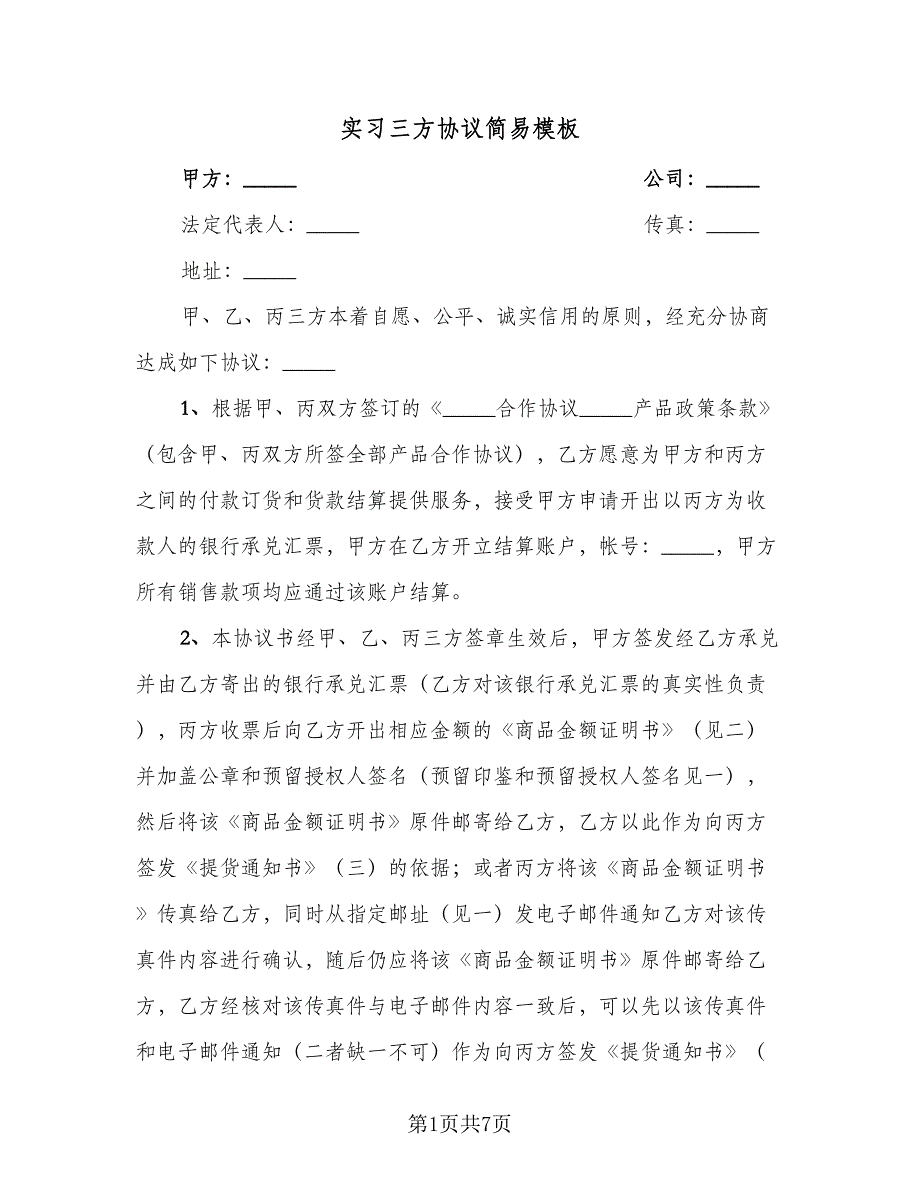 实习三方协议简易模板
甲方：_____ 公司：_____
法定代表人：_____ 传真：_____
地址：_____
甲、乙、丙三方本着自愿、公平、诚实信用的原则，经充分协商
达成如下协议：_____
1、根据甲、丙双方签订的《_____合作协议_____产品政策条款》
（包含甲、丙双方所签全部产品合作协议），乙方愿意为甲方和丙方
之间的付款订货和货款结算提供服务，接受甲方申请开出以丙方为收
款人的银行承兑汇票，甲方在乙方开立结算账户，帐号：_____，甲方
所有销售款项均应通过该账户结算。
2、本协议书经甲、乙、丙三方签章生效后，甲方签发经乙方承兑
并由乙方寄出的银行承兑汇票（乙方对该银行承兑汇票的真实性负责
），丙方收票后向乙方开出相应金额的《商品金额证明书》（见二）
并加盖公章和预留授权人签名（预留印鉴和预留授权人签名见一），
然后将该《商品金额证明书》原件邮寄给乙方，乙方以此作为向丙方
签发《提货通知书》（三）的依据；或者丙方将该《商品金额证明书
》传真给乙方，同时从指定邮址（见一）发电子邮件通知乙方对该传
真件内容进行确认，随后仍应将该《商品金额证明书》原件邮寄给乙
方，乙方经核对该传真件与电子邮件内容一致后，可以先以该传真件
和电子邮件通知（二者缺一不可）作为向丙方签发《提货通知书》（
第1页共7页